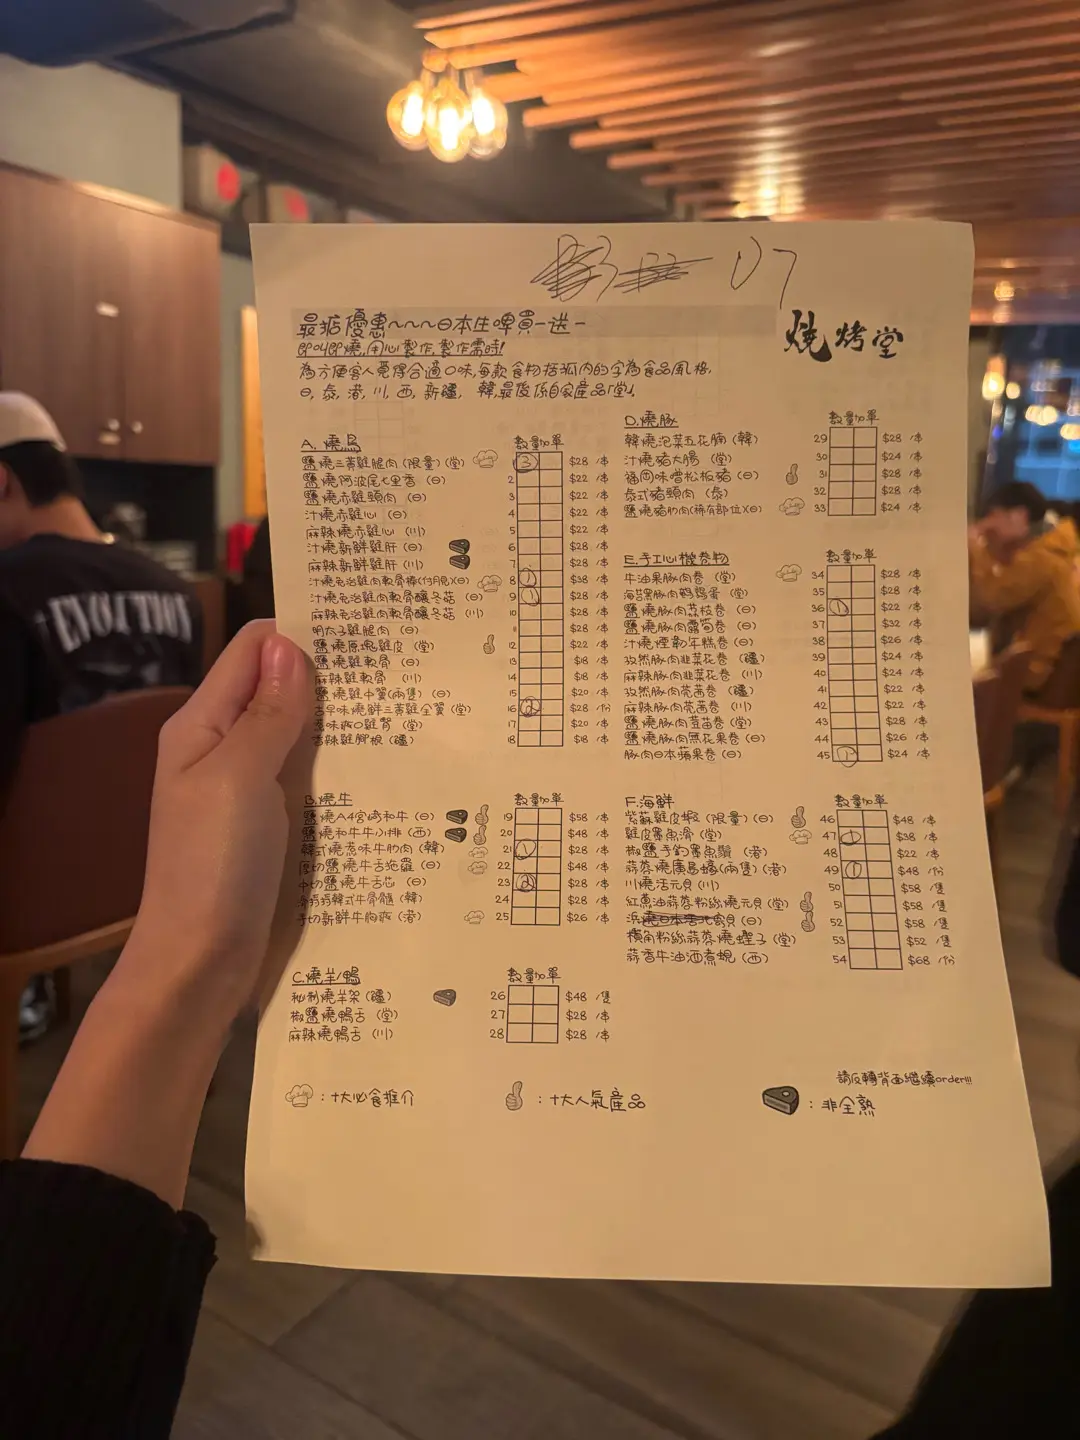 07
最掂優惠~~~日本生啤買一送一
燒烤堂
即叫即燒,用心製作,製作需時!
為方便客人覓得合適口味,每款食物括弧内的字為食品風格,
日, 泰, 港, 川, 西, 新疆, 韓,最後係自家產品「堂」
A. 燒鳥 數量 加單
鹽燒三黃雞腿肉(限量)(堂) ③ $28 /本
鹽燒阿波尾七里香 (日) 2 $22 /本
鹽燒赤雞頸肉 (日) 3 $22 /本
汁燒赤雞心 (日) 4 $22 /本
麻辣燒赤雞心 (川) 5 $22 /本
汁燒新鮮雞肝 (日) 6 $28 /本
麻辣新鮮雞肝 (川) 7 $28 /本
汁燒免治雞肉軟骨棒(付月見)(日) 8 ① $38 /本
汁燒免治雞肉軟骨釀冬菇 (日) 9 ① $28 /本
麻辣免治雞肉軟骨釀冬菇 (川) 10 $28 /本
明太子雞腿肉 (日) 11 $28 /本
鹽燒原塊雞皮 (堂) 12 $22 /本
鹽燒雞軟骨 (日) 13 $18 /本
麻辣雞軟骨 (川) 14 $18 /本
鹽燒雞中翼(兩隻) (日) 15 $20 /本
古早味燒鮮三黃雞全翼 (堂) 16 ② $28 /份
惹味疏口雞腎 (堂) 17 $20 /本
香辣雞腳根 (疆) 18 $18 /本
B. 燒牛 數量 加單
鹽燒A4宮崎和牛 (日) 19 $58 /本
鹽燒和牛牛小排 (西) 20 $48 /本
韓式燒惹味牛肋肉 (韓) 21 ① $28 /本
厚切鹽燒牛舌拖羅 (日) 22 $48 /本
中切鹽燒牛舌芯 (日) 23 ② $28 /本
韓式牛骨髓 (韓) 24 $28 /本
手切新鮮牛胸爽 (港) 25 $26 /本
C. 燒羊/鴨 數量 加單
秘制燒羊架 (疆) 26 $48 /隻
椒鹽燒鴨舌 (堂) 27 $28 /本
麻辣燒鴨舌 (川) 28 $28 /本
D. 燒豚 數量 加單
韓燒泡菜五花腩 (韓) 29 $28 /本
汁燒豬大腸 (堂) 30 $24 /本
福岡味噌松板豬 (日) 31 $28 /本
泰式豬頸肉 (泰) 32 $28 /本
鹽燒豬肋肉(稀有部位)(日) 33 $24 /本
E. 手工心機卷物 數量 加單
牛油果豚肉卷 (堂) 34 $28 /本
海苔黑豚肉鵪鶉蛋 (堂) 35 $28 /本
鹽燒豚肉荔枝卷 (日) 36 ① $22 /本
鹽燒豚肉露筍卷 (日) 37 $32 /本
汁燒煙韌年糕卷 (日) 38 $26 /本
孜然豚肉韭菜花卷 (疆) 39 $24 /本
麻辣豚肉韭菜花卷 (川) 40 $24 /本
孜然豚肉芫茜卷 (疆) 41 $22 /本
麻辣豚肉芫茜卷 (川) 42 $22 /本
鹽燒豚肉豆苗卷 (堂) 43 $28 /本
鹽燒豚肉無花果卷 (日) 44 $26 /本
豚肉日本蘋果卷 (日) 45 ① $24 /本
F. 海鮮 數量 加單
紫蘇雞皮蝦 (限量) (日) 46 $48 /本
雞皮墨魚滑 (堂) 47 ① $38 /本
椒鹽手釣墨魚鬚 (港) 48 $22 /本
蒜蓉燒廣島蠔(兩隻)(港) 49 ① $48 /份
川燒活元貝 (川) 50 $58 /隻
紅蔥油蒜蓉粉絲燒元貝 (堂) 51 $58 /隻
浜燒日本害北寄貝 (日) 52 $58 /隻
橫角粉絲蒜蓉燒蟶子 (堂) 53 $52 /隻
蒜香牛油酒煮蜆 (西) 54 $68 /份
請反轉背面繼續order!!!
:十大必食推介
:十大人氣產品
:非全熟